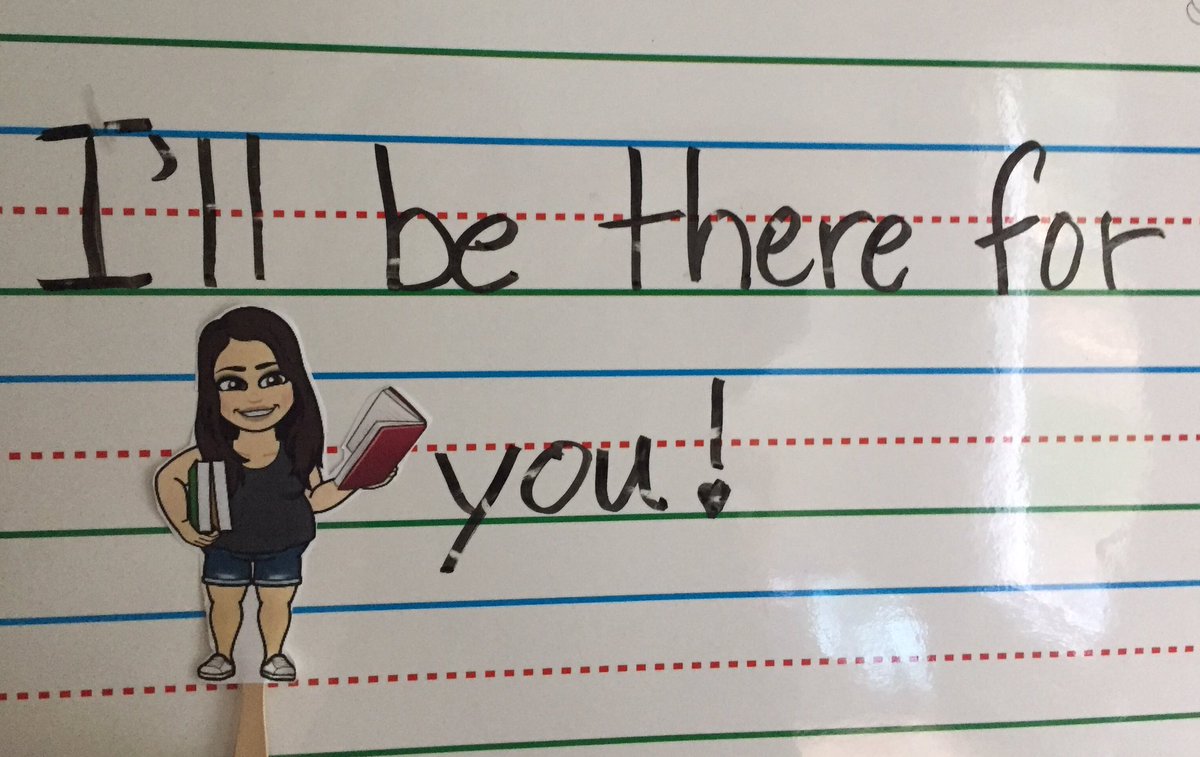 I'll be there for
you!